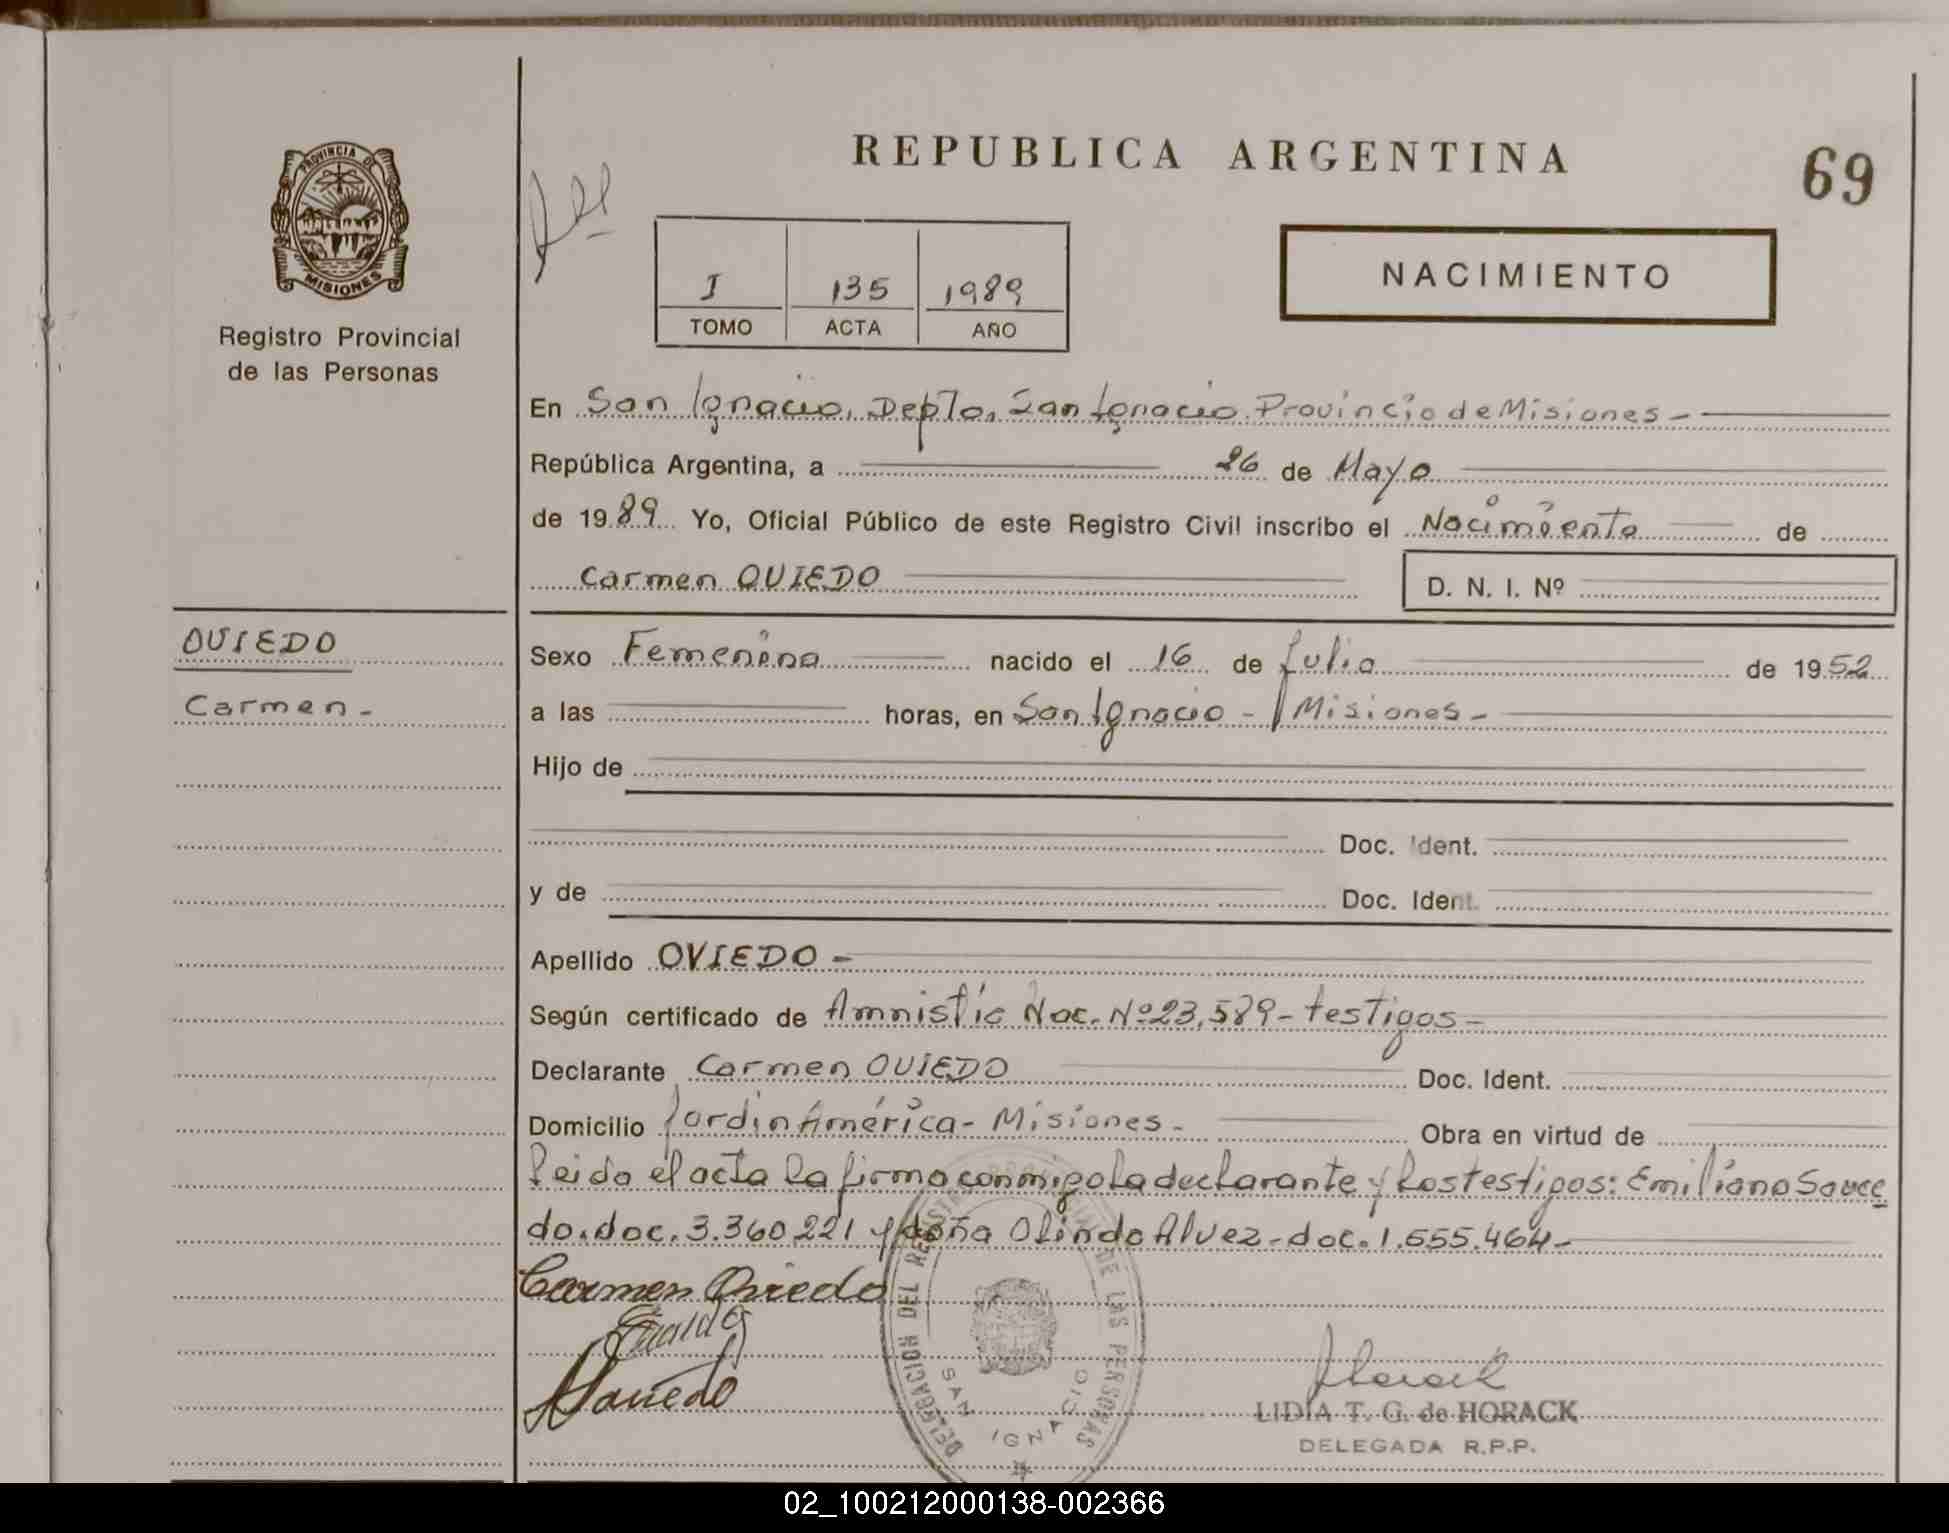 REPUBLICA ARGENTINA
69
PROVINCIA DE
MISIONES
Registro Provincial
de las Personas
I 135 1989
TOMO ACTA AÑO
NACIMIENTO
En San Ignacio, Depto. San Ignacio Provincia de Misiones -
República Argentina, a 26 de Mayo
de 1989 Yo, Oficial Público de este Registro Civil inscribo el Nacimiento de
Carmen OVIEDO
D. N. I. Nº
OVIEDO
Carmen -
Sexo Femenina nacido el 16 de Julio de 1952
a las horas, en San Ignacio - Misiones -
Hijo de
Doc. Ident.
y de Doc. Ident.
Apellido OVIEDO -
Según certificado de Amnistía Nac. Nº 23,589 - testigos -
Declarante Carmen OVIEDO Doc. Ident.
Domicilio Jardin América - Misiones - Obra en virtud de
Leida el acta la firma conmigo la declarante y los testigos: Emiliano Sauce
do. doc. 3.360221 y doña Olinda Alvez - doc. 1.555.464 -
Carmen Oviedo
DELEGACION DEL REGISTRO PROVINCIAL DE LAS PERSONAS
SAN IGNACIO
LIDIA T. G. de HORACK
DELEGADA R.P.P.
02_100212000138-002366